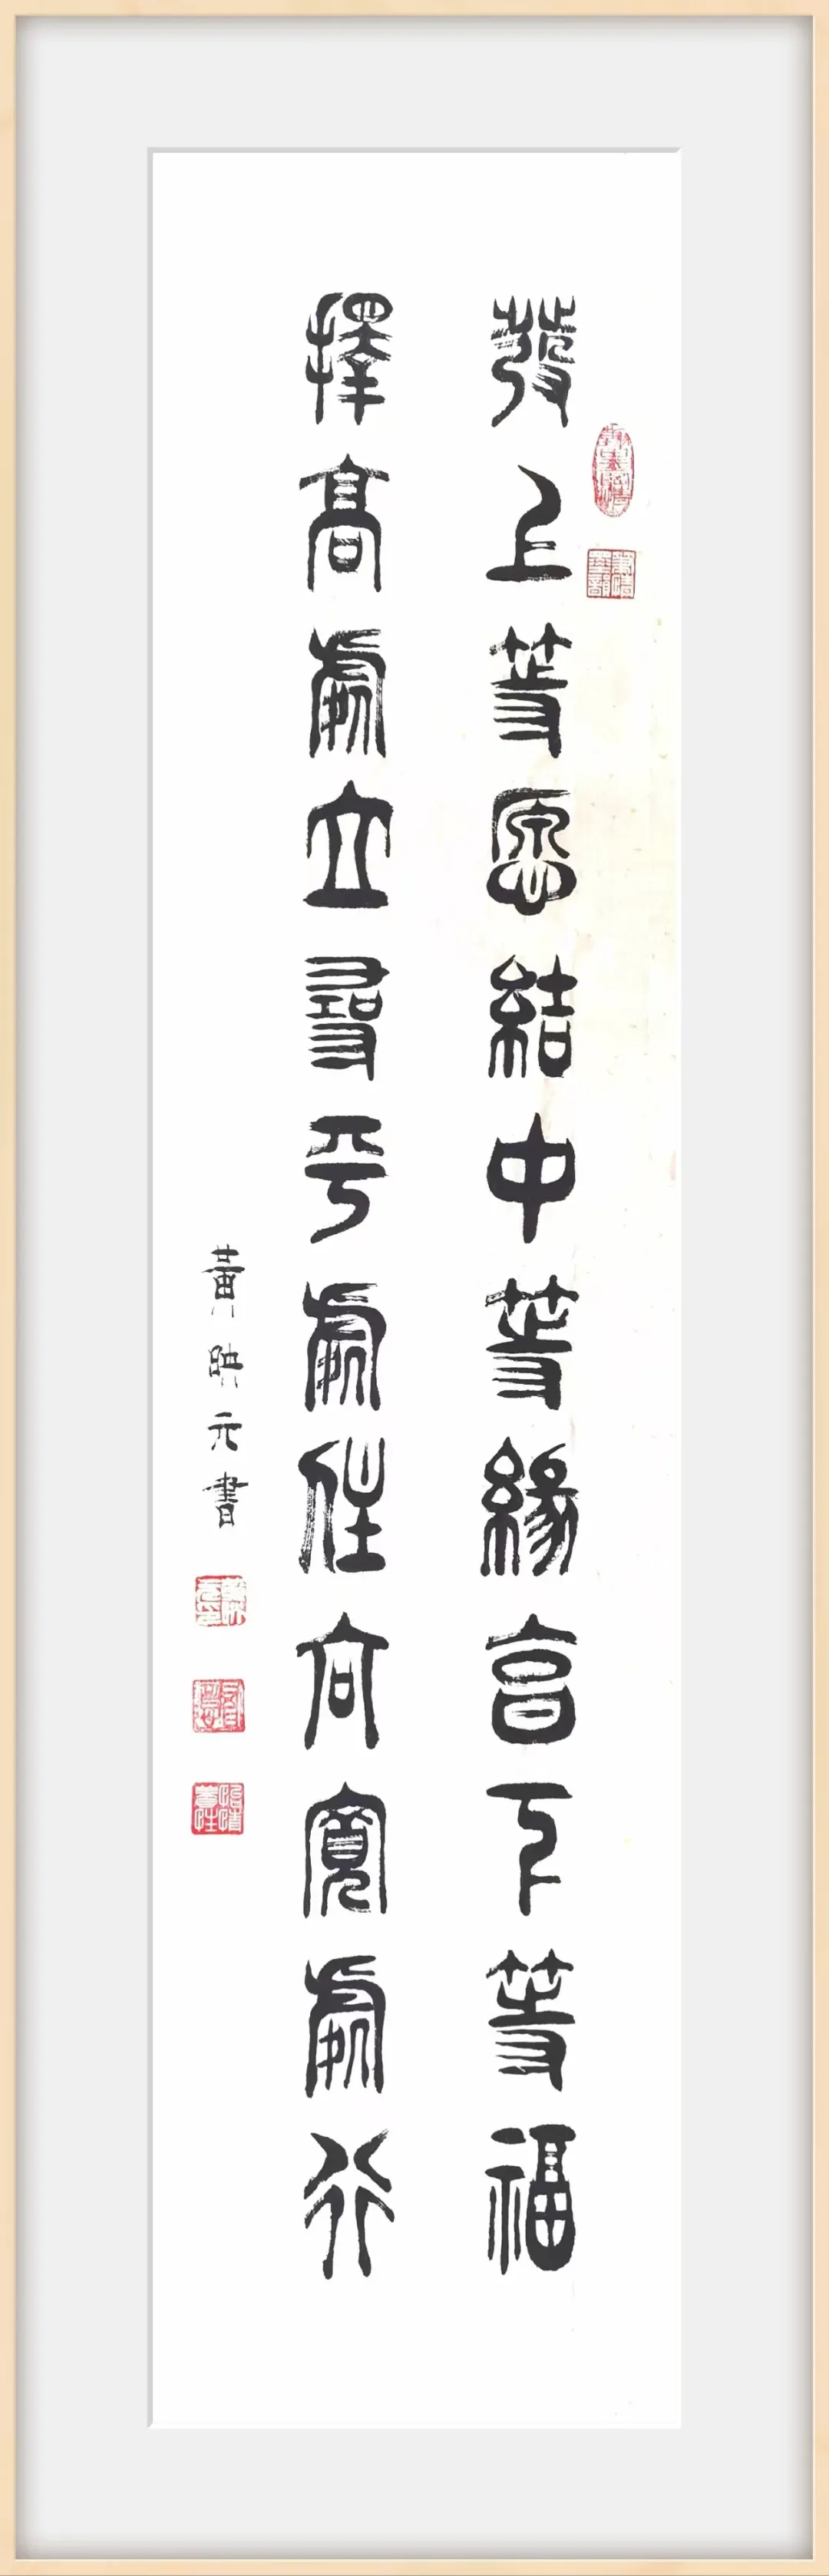 發上等愿結中等緣享下等福
擇高處立尋平處住向寬處行
黃映元書